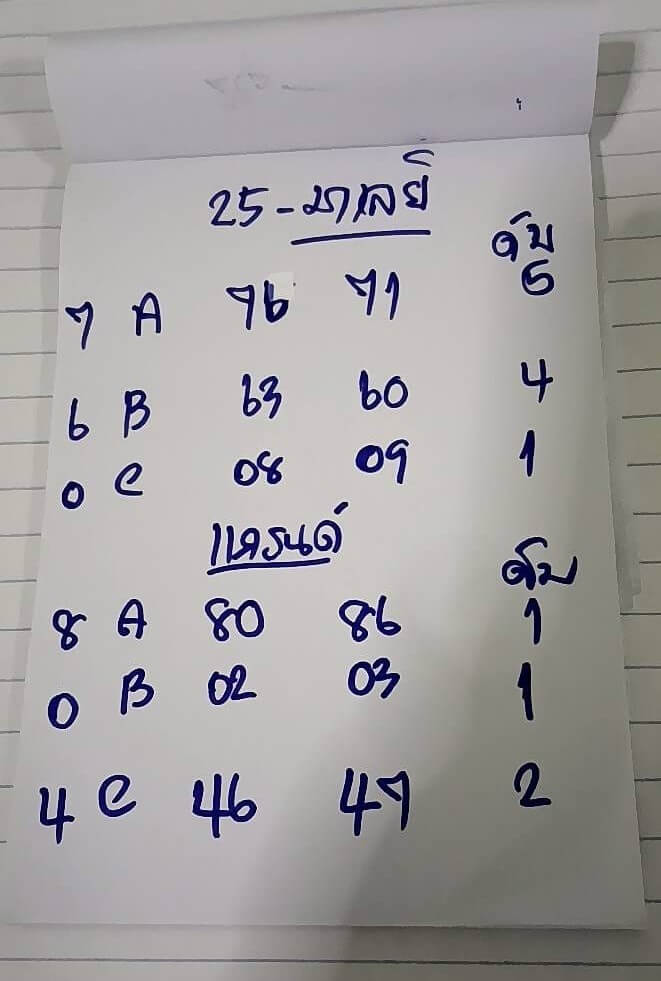 25-มาเลย์
ดับ
7 A 76 71 5
6 B 63 60 4
0 C 08 09 1
แกรนด์
ดับ
8 A 80 86 1
0 B 02 03 1
4 C 46 47 2